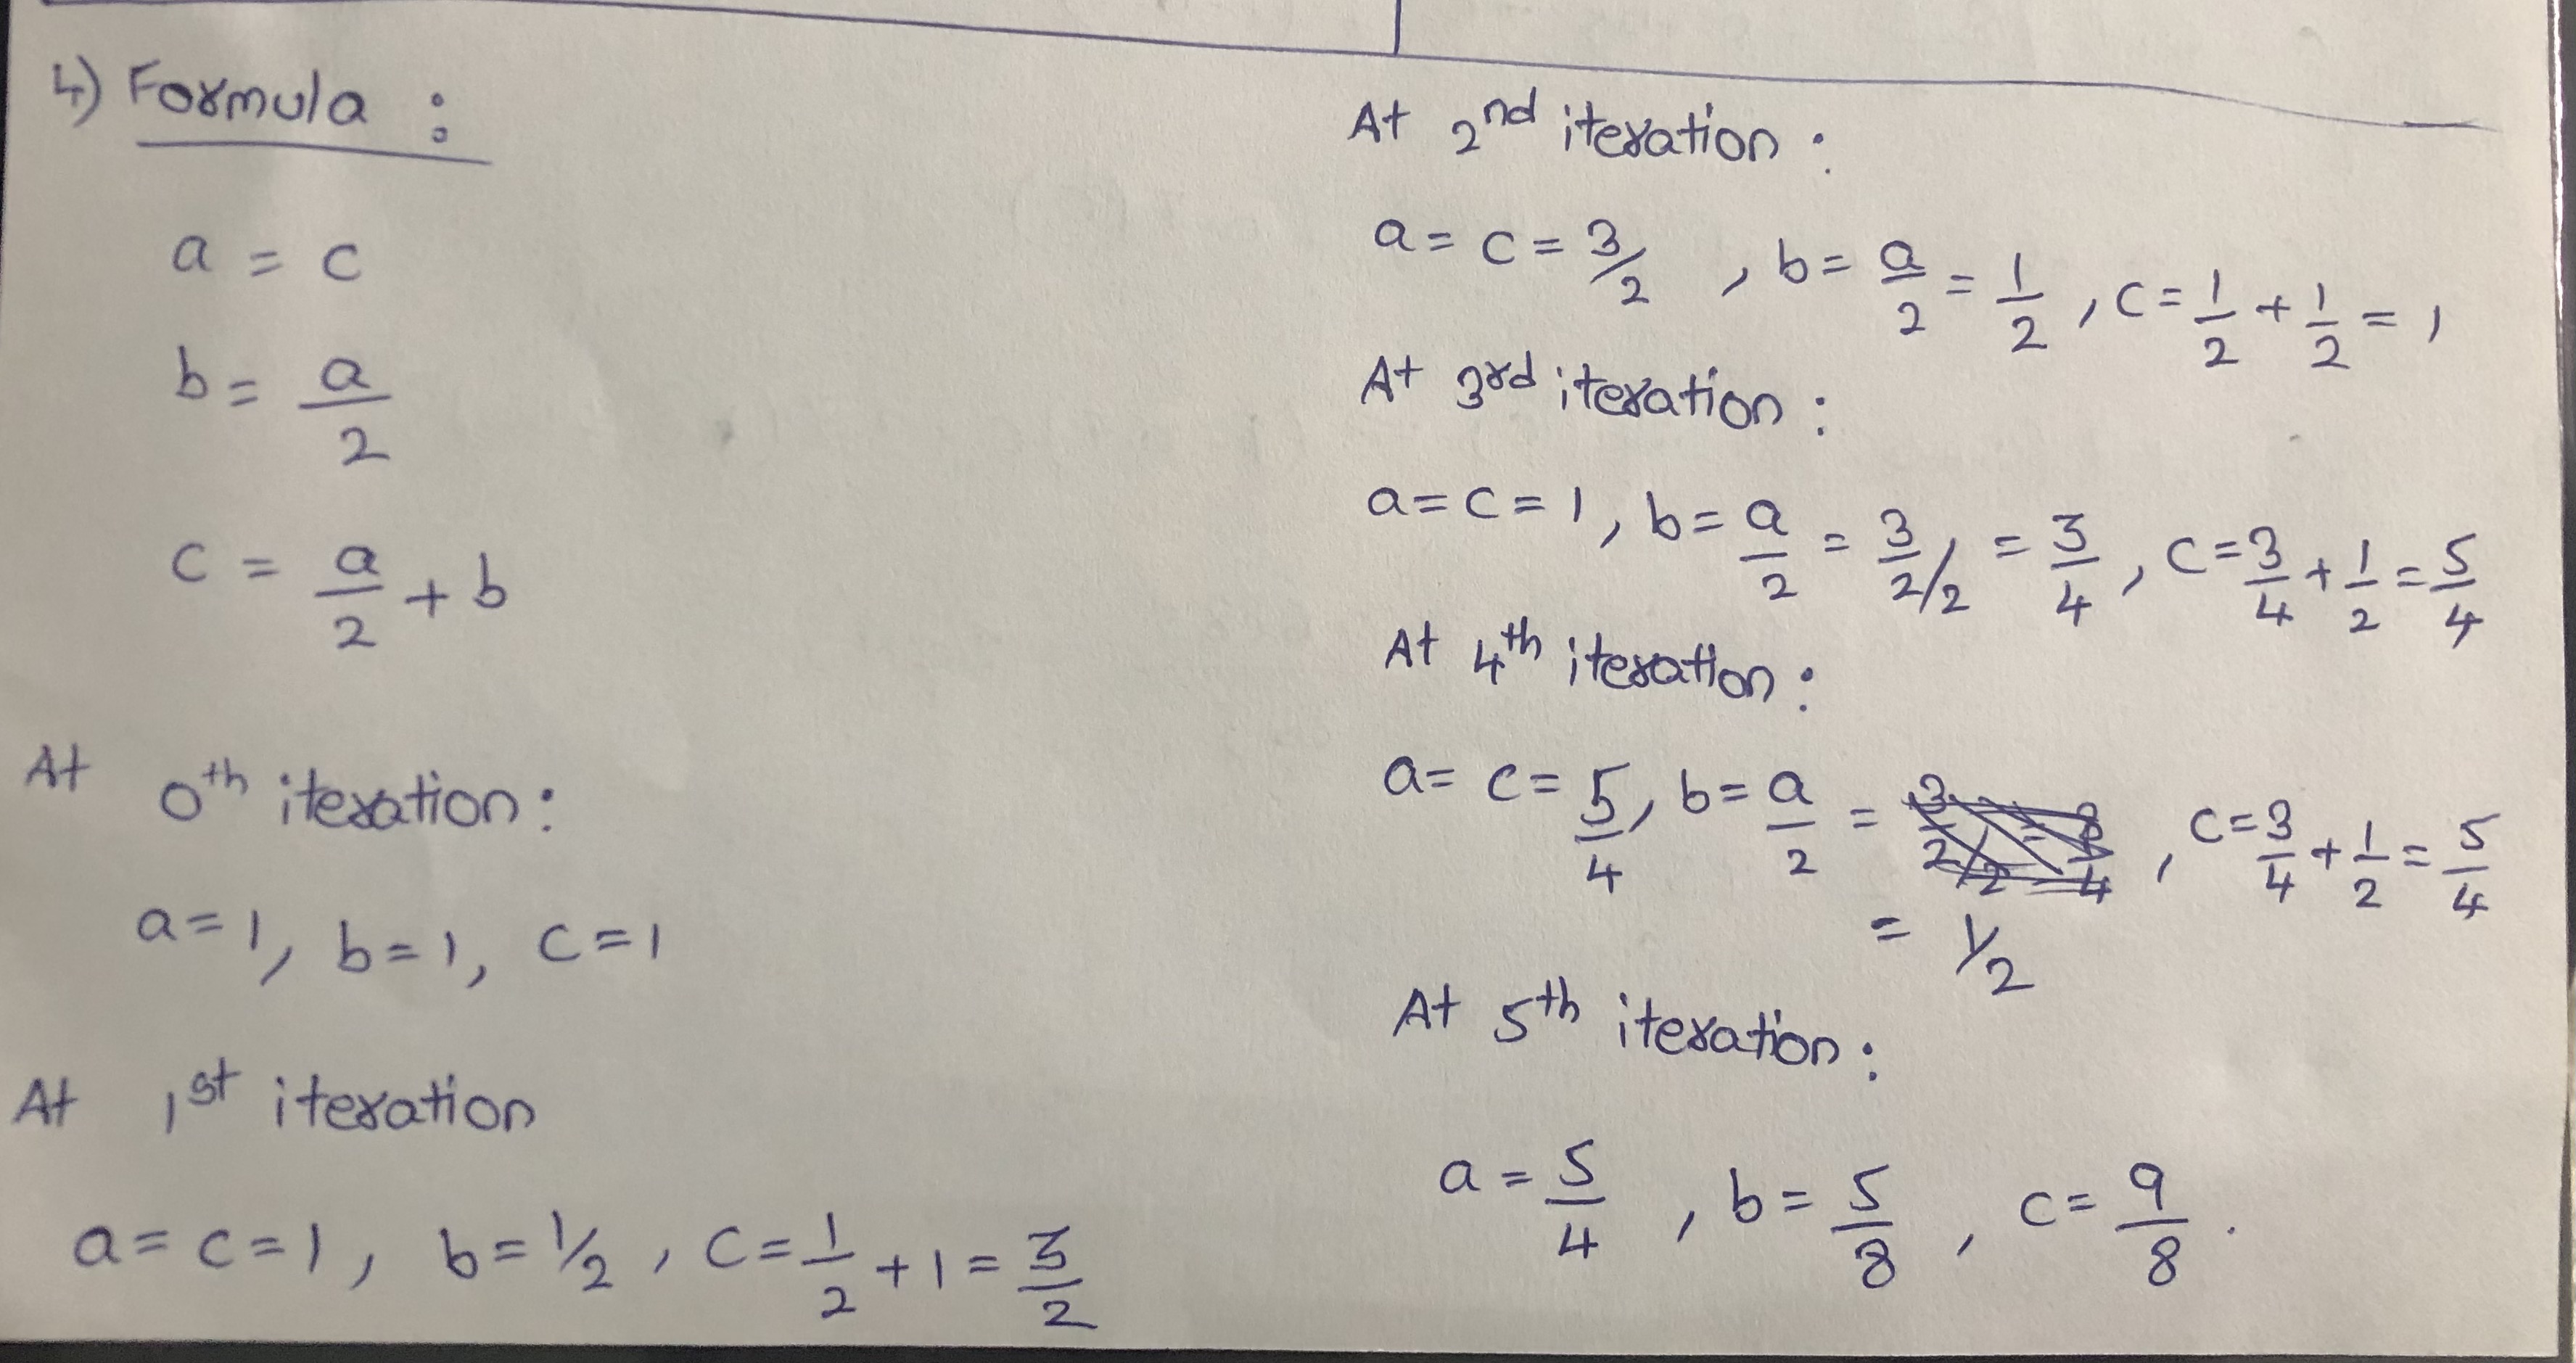 4) Formula :
a = c
b = a/2
c = a/2 + b
At 0th iteration :
a = 1, b = 1, c = 1
At 1st iteration
a = c = 1, b = 1/2, c = 1/2 + 1 = 3/2
At 2nd iteration :
a = c = 3/2, b = a/2 = 1/2, c = 1/2 + 1/2 = 1
At 3rd iteration :
a = c = 1, b = a/2 = 3/2/2 = 3/4, c = 3/4 + 1/2 = 5/4
At 4th iteration :
a = c = 5/4, b = a/2 = , c = 3/4 + 1/2 = 5/4
= 1/2
At 5th iteration :
a = 5/4, b = 5/8, c = 9/8.